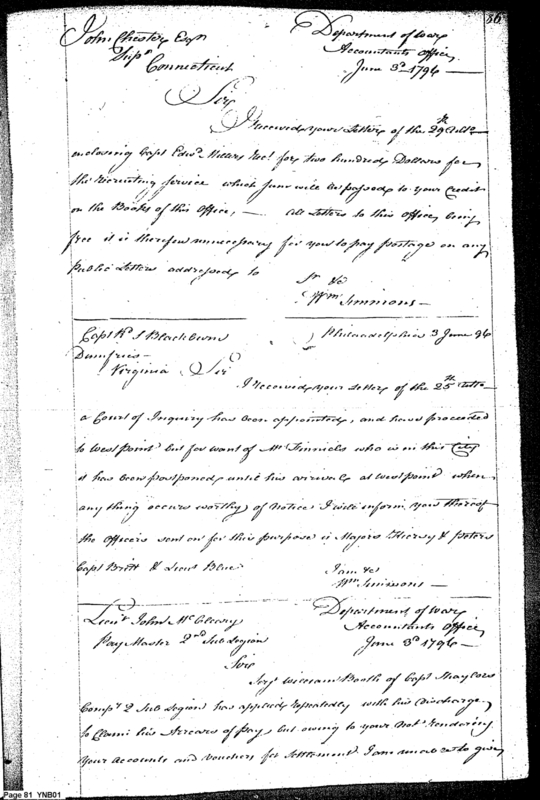 86
John Chester Esqr Department of War
Supr Accountants Office,
Connecticut June 3d 1796
Sir
I received your Letter of the 29th Ulto
enclosing Capt Edwd Millers Rect for two hundred Dollars for
the recruiting Service which sum will be passed to your Credit
on the Books of this Office, — All Letters to this Office being
free it is therefore unnecessary for you to pay postage on any
Public Letters addressed to
Sr &c
Wm Simmons
Capt Rd S Blackburn Philadelphia 3 June 96
Dumfries
Virginia Sir
I received your Letter of the 25th Ulto
a Court of Inquiry has been appointed, and have proceeded
to West point but for want of Mr who is in this City
it has been postponed until his arrival at West point when
any thing occurs worthy of Notice I will inform you thereof
the Officers sent on for this purpose is Majors & Peters
Capt Britt & Lieut Blue
I am &c
Wm Simmons
Lieut John McCleary Department of War
Pay Master 2nd Sub Legion Accountants Office,
June 3d 1796
Sir
Serjt William Booth of Capt Shaylors
Compy 2 Sub Legion has applied repeatedly with his Discharge
to Claim his Arrears of pay, but owing to your not rendering
your Accounts and Vouchers for Settlement I am unable to give
Page 81 YNB01